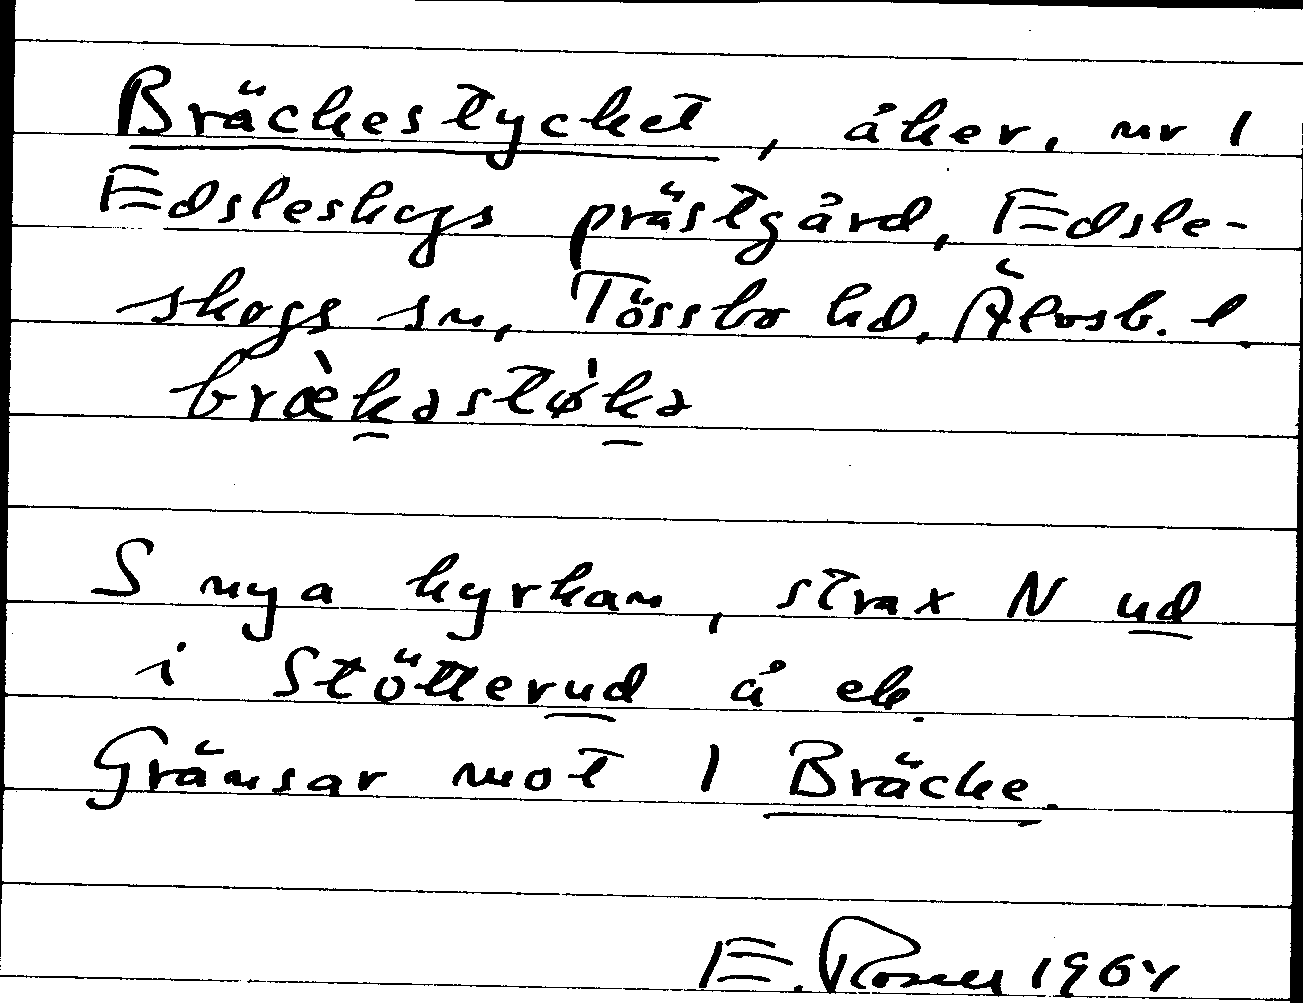 Bräckestycket, åker, nr 1
Edsleskogs prästgård, Edsle-
skogs sn, Tössbo hd, Älvsb. l.
bræ̀kastø̀ka
S nya kyrkan, strax N ud
i Stötterud å ek.
Gränsar mot 1 Bräcke.
E. 1964